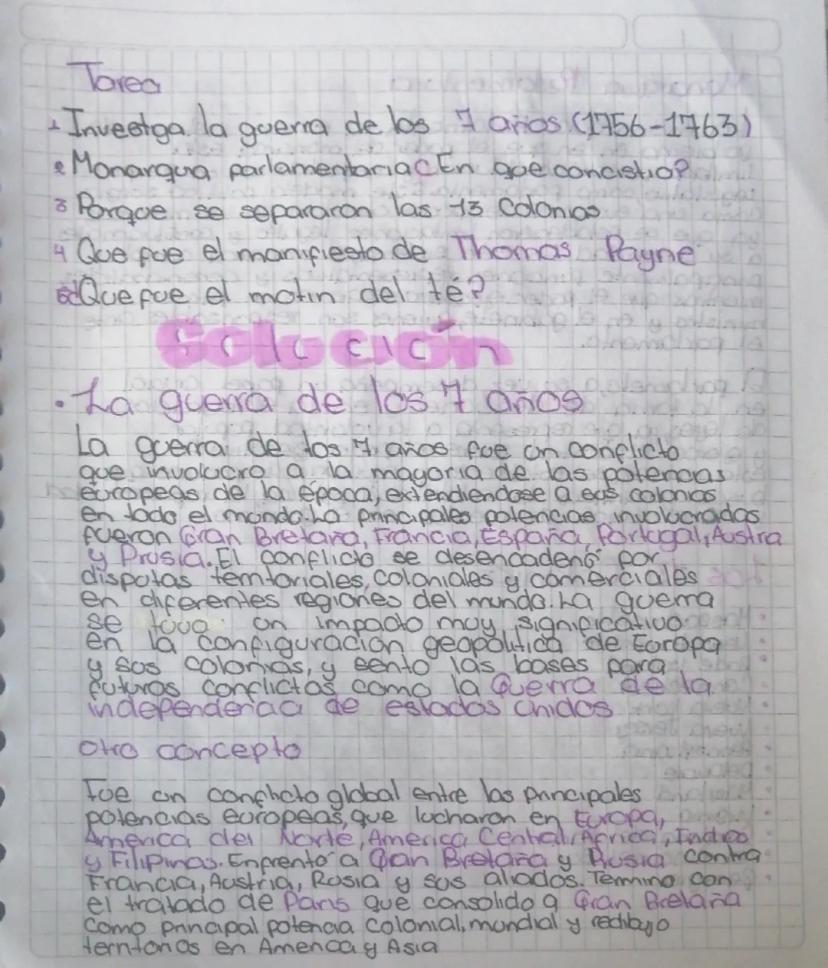 Tarea
1 Investga la guerra de los 7 años (1756-1763)
2 Monarqua parlamentaria ¿En que concistio?
3 Porque se separaron las 13 Colonias
4 Que fue el manifiesto de Thomas Payne
5 ¿Que fue el motin del té?
Solución
• La guerra de los 7 años
La guerra de los 7 años fue un conflicto
que involucro a la mayoria de las potencias
europeas de la época, extendiendose a sus colonias
en todo el mundo. La principales potencias involucradas
fueron Gran Bretaña, Francia, España, Portugal, Austra
y Prusia. El conflicto se desencadenó por
disputas territoriales, coloniales y comerciales
en diferentes regiones del mundo. La guerra
se tuvo un impacto muy significativo
en la configuración geopolítica de Europa
y sus colonias, y sento las bases para
futuros conflictos como la Guerra de la
independencia de estados unidos
otro concepto
Fue un conflicto global entre las principales
potencias europeas, que lucharon en Europa,
America del Norte, America Central, Africa, Indico
y Filipinas. Enfrento a Gran Bretaña y Prusia contra
Francia, Austria, Rusia y sus aliados. Termino con
el tratado de Paris que consolido a Gran Bretaña
como principal potencia colonial, mundial y redibujo
territorios en America y Asia